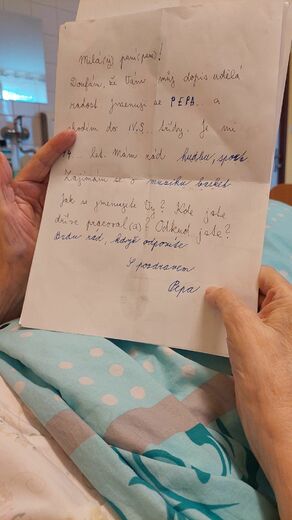 Milá(ý) paní (pane)!
Doufám, že Vám můj dopis udělá
radost. Jmenuji se PEPA... a
chodím do IV.S... třídy. Je mi
14... let. Mám rád hudbu, sport
Zajímám se o muziku basket
Jak se jmenujete Vy? Kde jste
dříve pracoval(a)? Odkud jste?
Budu rád, když odpovíte
S pozdravem
Pepa